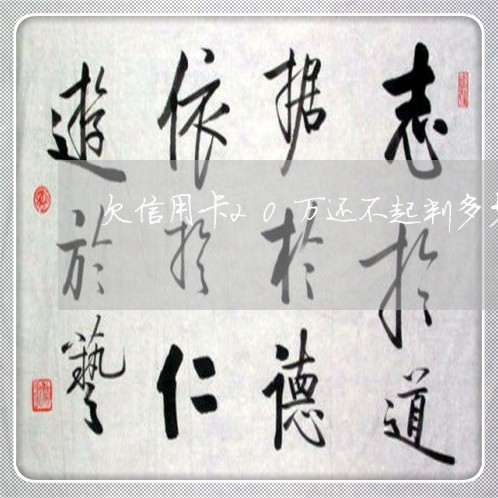 志於道
据於德
依於仁
遊於藝
欠信用卡20万还不起判多